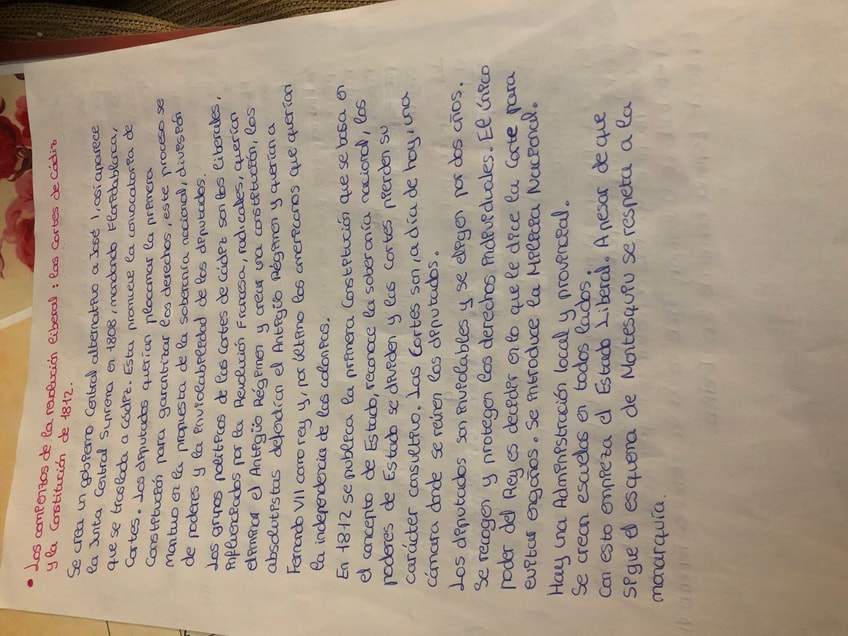 • Los comienzos de la revolución liberal: las Cortes de Cádiz
y la Constitución de 1812.
Se crea un gobierno Central alternativo a José I, así aparece
la Junta Central Suprema en 1808, mandando Floridablanca,
que se traslada a Cádiz. Esta promueve la convocatoria de
Cortes. Los diputados querían proclamar la primera
Constitución para garantizar los derechos, este proceso se
mantuvo en la propuesta de la soberanía nacional, división
de poderes y la inviolabilidad de los diputados.
Los grupos políticos de las Cortes de Cádiz son los liberales,
influenciados por la Revolución Francesa, radicales, querían
eliminar el Antiguo Régimen y crear una constitución, los
absolutistas defendían el Antiguo Régimen y querían a
Fernando VII como rey y, por último los americanos que querían
la independencia de las colonias.
En 1812 se publica la primera Constitución que se basa en
el concepto de Estado, reconoce la soberanía nacional, los
poderes de Estado se dividen y las Cortes pierden su
carácter consultivo. Las Cortes son, a día de hoy, una
cámara donde se reúnen los diputados.
Los diputados son inviolables y se eligen por dos años.
Se recogen y protegen los derechos individuales. El único
poder del Rey es decidir en lo que le dice la Corte para
evitar engaños. Se introduce la Milicia Nacional.
Hay una Administración local y provincial.
Se crean escuelas en todos lados.
Con esto empieza el Estado Liberal. A pesar de que
sigue el esquema de Montesquiu se respeta a la
monarquía.